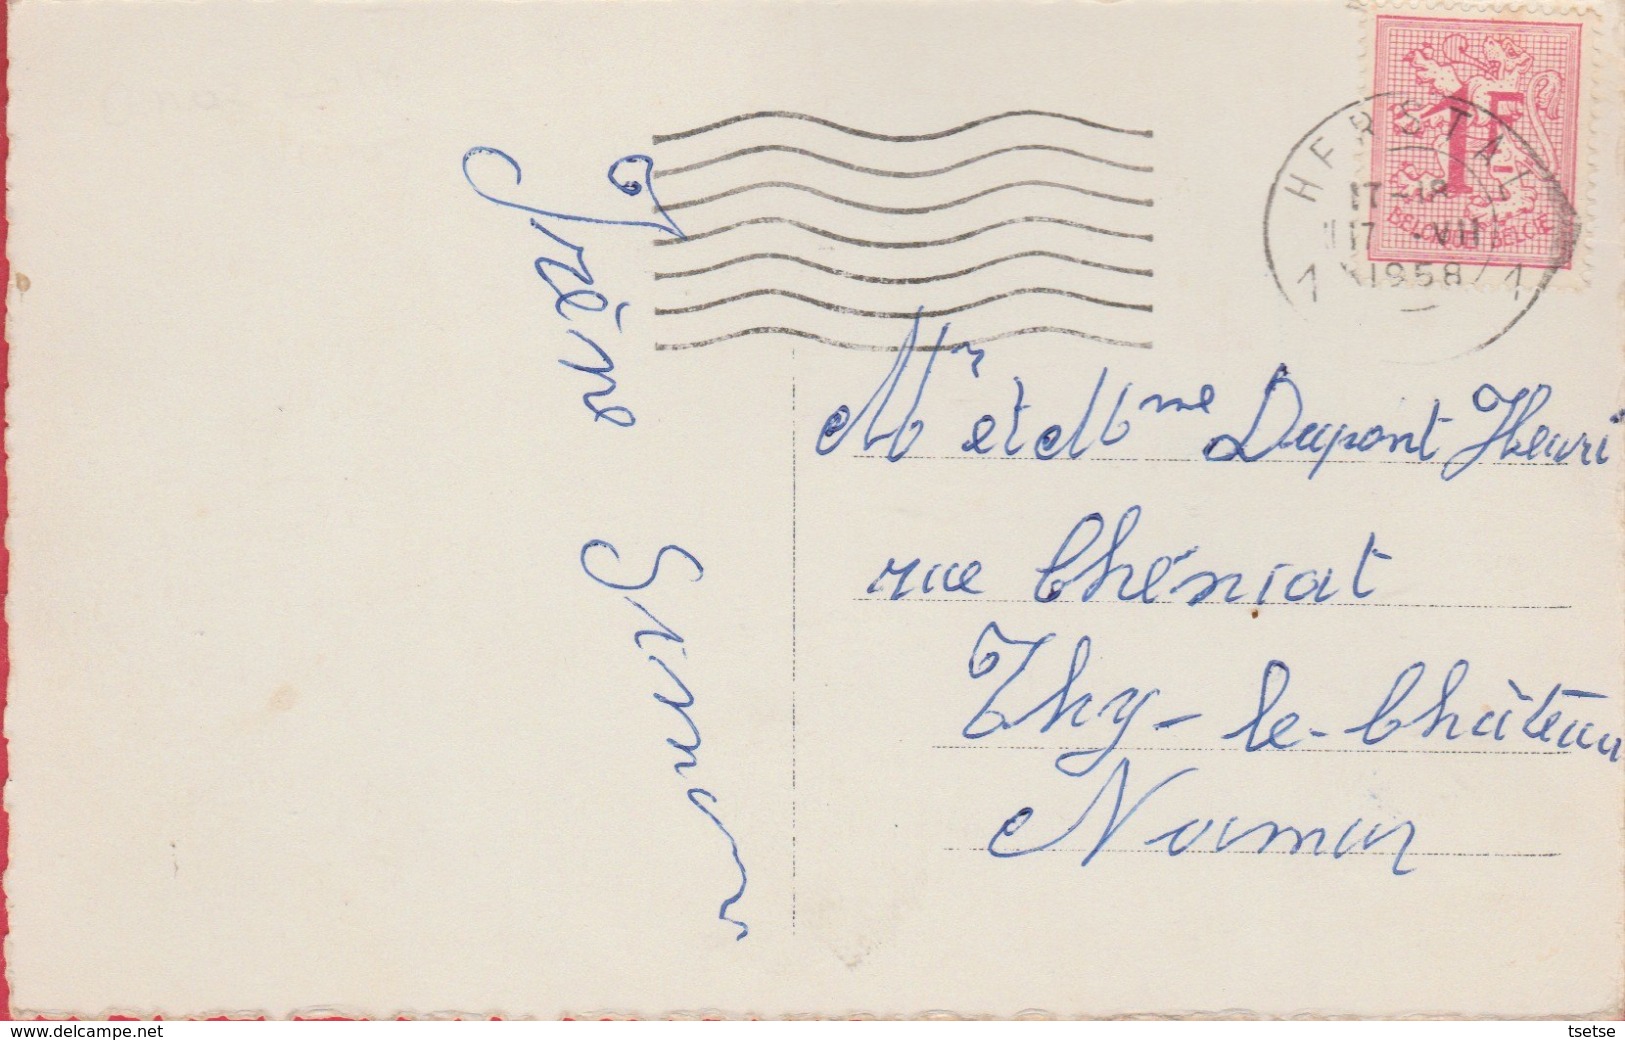 1F
BELGIQUE-BELGIE
HERSTAL
17-18
17 -VIII
1958
1 1
Irène
Mr et Mme Dupont Henri
rue Chéniat
Thy-le-Château
Namur
www.delcampe.net
tsetse